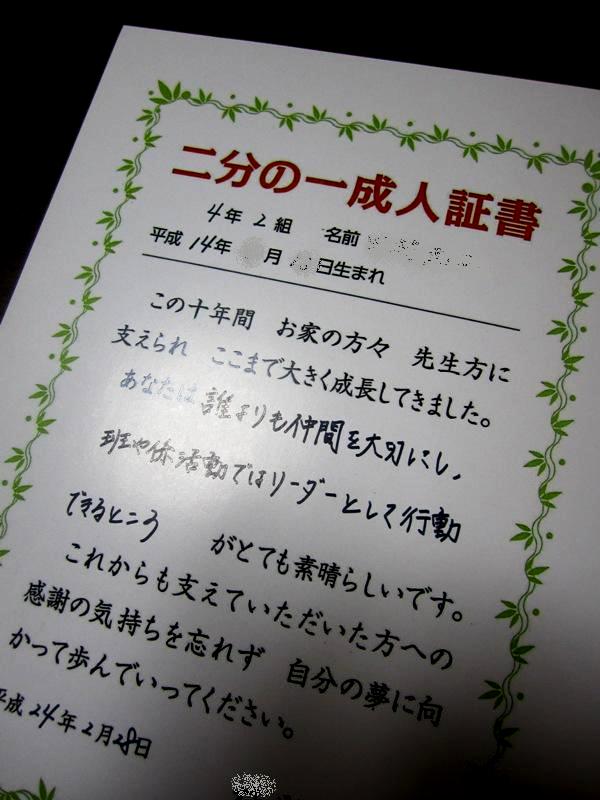 二分の一成人証書
4年2組 名前
平成14年 月 日生まれ
この十年間 お家の方々 先生方に
支えられ ここまで大きく成長してきました。
あなたは誰よりも仲間を大切にし、
班や係活動ではリーダーとして行動
できるところ がとても素晴らしいです。
これからも支えていただいた方への
感謝の気持ちを忘れず 自分の夢に向
かって歩んでいってください。
平成24年2月28日